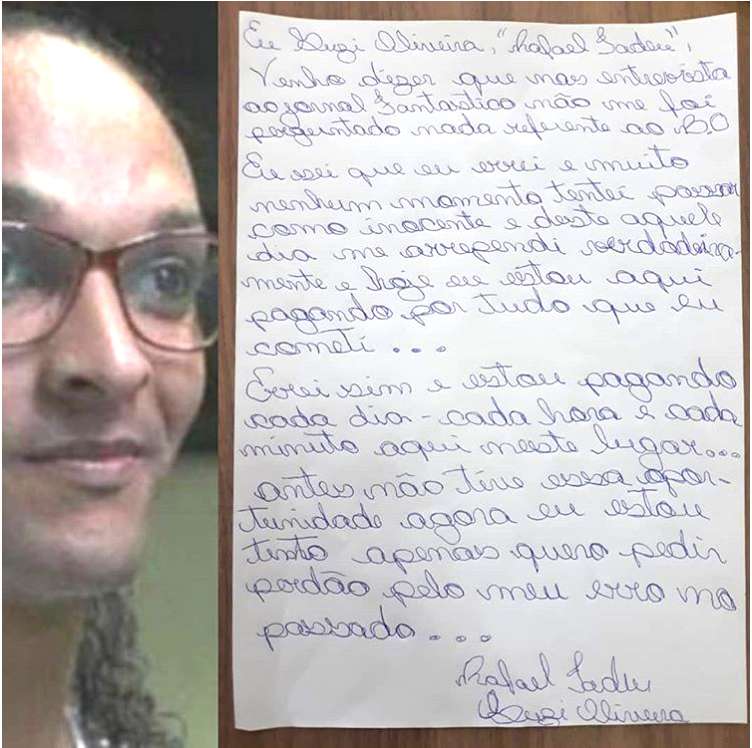 Eu Suzi Oliveira, "Rafael Tadeu",
Venho dizer que nas entrevista
ao jornal Fantastico não me foi
perguntado nada referente ao B.O
Eu sei que eu errei e muito
nenhum momento tentei passar
como inocente e deste aquele
dia me arrependi verdadeira-
mente e hoje eu estou aqui
pagando por tudo que eu
cometi...
Errei sim e estou pagando
cada dia - cada hora e cada
minuto aqui neste lugar...
antes não tive essa opor-
tunidade agora eu estou
tinto apenas quero pedir
perdão pelo meu erro no
passado...
Rafael Tadeu
Suzi Oliveira